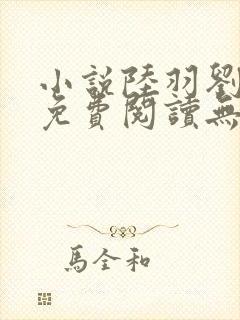 小說陸羽劉
免費閱讀無
馬全和